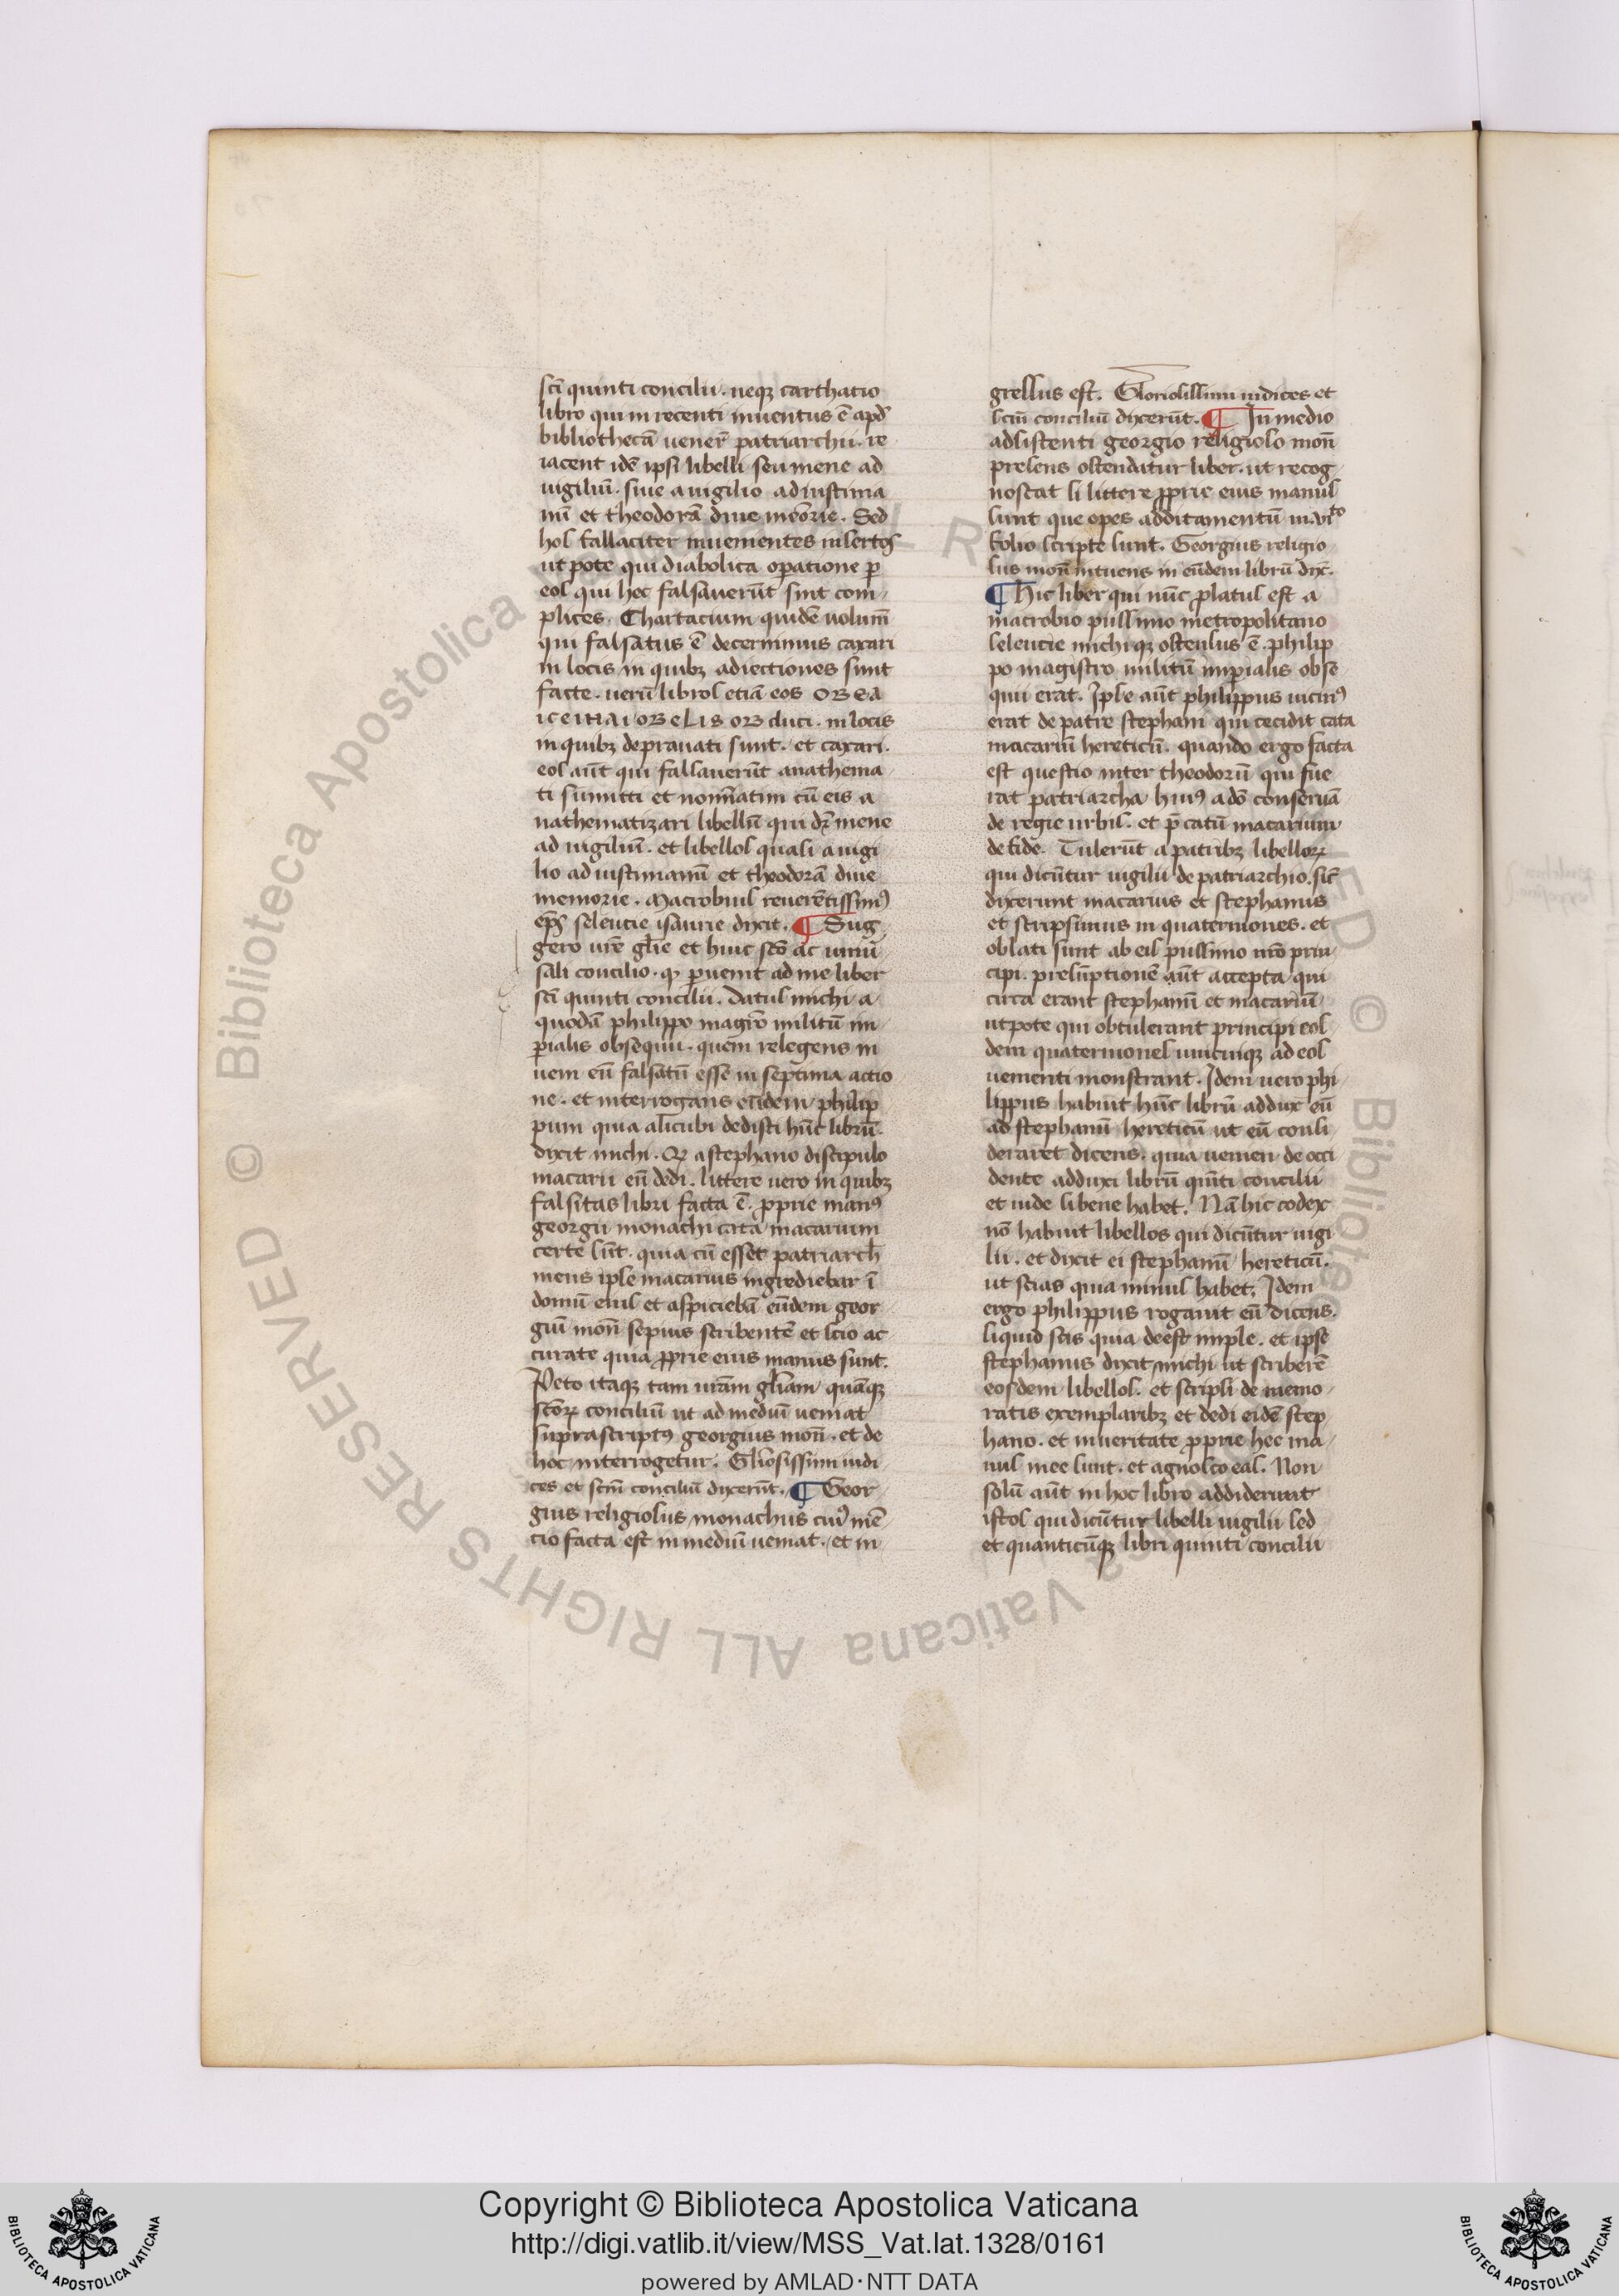 sc̄i quinti concilii. neqꝫ carthatio
libro qui in recenti inuentus ē apd̄
bibliothecā uener̄ patriarchii. re
iacent idē ipsi libelli seu mene ad
uigiliū. siue a uigilio ad iustinia
nū et theodorā diue meōrie. Sed
hos fallaciter inuenientes insertos
ut pote qui diabolica oꝑatione ꝑ
eos qui hec falsauerūt sint com
plices. Chartacium quidē uolum̄
qui falsatus ē decernimus caxari
in locis in quibꝫ adiectiones sunt
facte. uerū libros etiā eos OBEA
OBELIS OB duci. in locis
in quibꝫ deprauati sunt. et caxari.
eos aūt qui falsauerūt anathema
ti sūmitti et nomı̄atim cū eis a
nathematizari libellū qui dr̄ mene
ad uigiliū. et libellos quasi a uigi
lio ad iustinianū et theodorā diue
memorie. Macrobius reuerētissimꝰ
ep̄s seleucie isaurie dixit. ¶ Sug
gero ur̄e gl̄ie et huic sc̄o ac uniū
sali concilio. ꝙ ꝑuenit ad me liber
sc̄i quinti concilii. datus michi a
quodā philippo magr̄o militū im
ꝑialis obsequii. quem relegens in
ueni eū falsatū esse in septima actio
ne. et interrogans eūdem philip
pum quia alicubi dedisti hūc librū.
dixit michi. Qꝫ a stephano discipulo
macarii eū dedi. littere uero in quibꝫ
falsitas libri facta ē. ꝓprie manꝰ
georgii monachi cata macarium
certe sūt. quia cū esset patriarch̄
mens ipse macarius ingrediebar ī
domū eius et aspiciebā eūdem geor
giū mon̄ sepius scribentē et scio ac
curate quia ꝓprie eius manus sunt.
Peto itaqꝫ tam ur̄am gl̄iam quāqꝫ
sc̄oꝝ conciliū ut ad mediū ueniat
suprascriptꝰ georgius mon̄. et de
hoc interrogetur. Gl̄iosissimi iudi
ces et scm̄ conciliū dixerūt. ¶ Geor
gius religiosus monachus cuiꝰ mē
tio facta est in mediū ueniat. et in
gressus est. Gloriosissimi iudices et
scm̄ conciliū dixerūt. ¶ In medio
adsistenti georgio religioso mon̄
presens ostendatur liber. ut recog
noscat si littere ꝓprie eius manus
sunt que opes additamentū in.vi.to
folio scripte sunt. Georgius religio
sus mon̄ intuens in eūdem librū dix̄.
¶ Hic liber qui nūc ꝓlatus est a
macrobio piissimo metropolitano
seleucie michiqꝫ ostensus ē. philip
po magistro militū imꝑialis obse
quii erat. Ipse aūt philippus uicinꝰ
erat de patre stephani qui cecidit cata
macariū hereticū. quando ergo facta
est questio inter theodorū qui fue
rat patriarcha huiꝰ a dō conseruā
de regie urbis. et p̄catū macarium
de fide. Tulerūt a patribꝫ libelloꝝ
qui dicūtur uigilii de patriarchio. sic̄
dixerunt macarius et stephanus
et scripsimus in quaterniones. et
oblati sunt ab eis piissimo nr̄o prin
cipi. presūptionē aūt accepta qui
circa erant stephanū et macariū
utpote qui obtulerant principi eos
dem quaterniones unicuiqꝫ ad eos
uenienti monstrant. Idem uero phi
lippus habuit hūc librū addux̄ eū
ad stephanū hereticū ut eū consi
deraret dicens. quia ueniens de occi
dente adduxi librū quīti concilii
et uide si bene habet. Nā hic codex
nō habuit libellos qui dicūtur uigi
lii. et dixit ei stephanū hereticū.
ut scias quia minus habet. Idem
ergo philippus rogauit eū dicens.
siquid scis quia deest imple. et ipse
stephanus dixit michi ut scriberē
eosdem libellos. et scripsi de memo
ratis exemplaribꝫ et dedi eidē step
hano. et in ueritate ꝓprie hec ma
nus mee sunt. et agnosco eas. Non
solū aūt in hoc libro addiderunt
istos qui dicūtur libelli uigilii sed
et quanticūqꝫ libri quinti concilii
© Biblioteca Apostolica Vaticana ALL RIGHTS RESERVED
Copyright © Biblioteca Apostolica Vaticana
http://digi.vatlib.it/view/MSS_Vat.lat.1328/0161
powered by AMLAD·NTT DATA
BIBLIOTECA APOSTOLICA VATICANA
BIBLIOTECA APOSTOLICA VATICANA